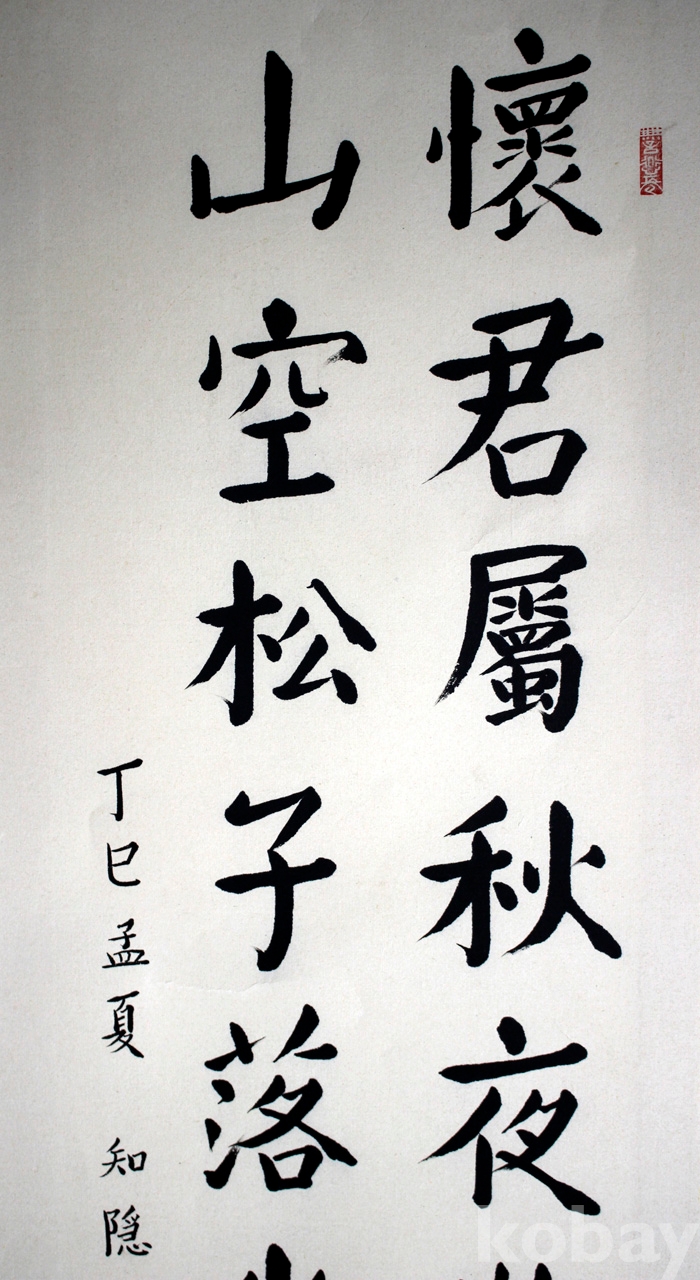 懷君屬秋夜
山空松子落
丁巳孟夏 知隱
kobay